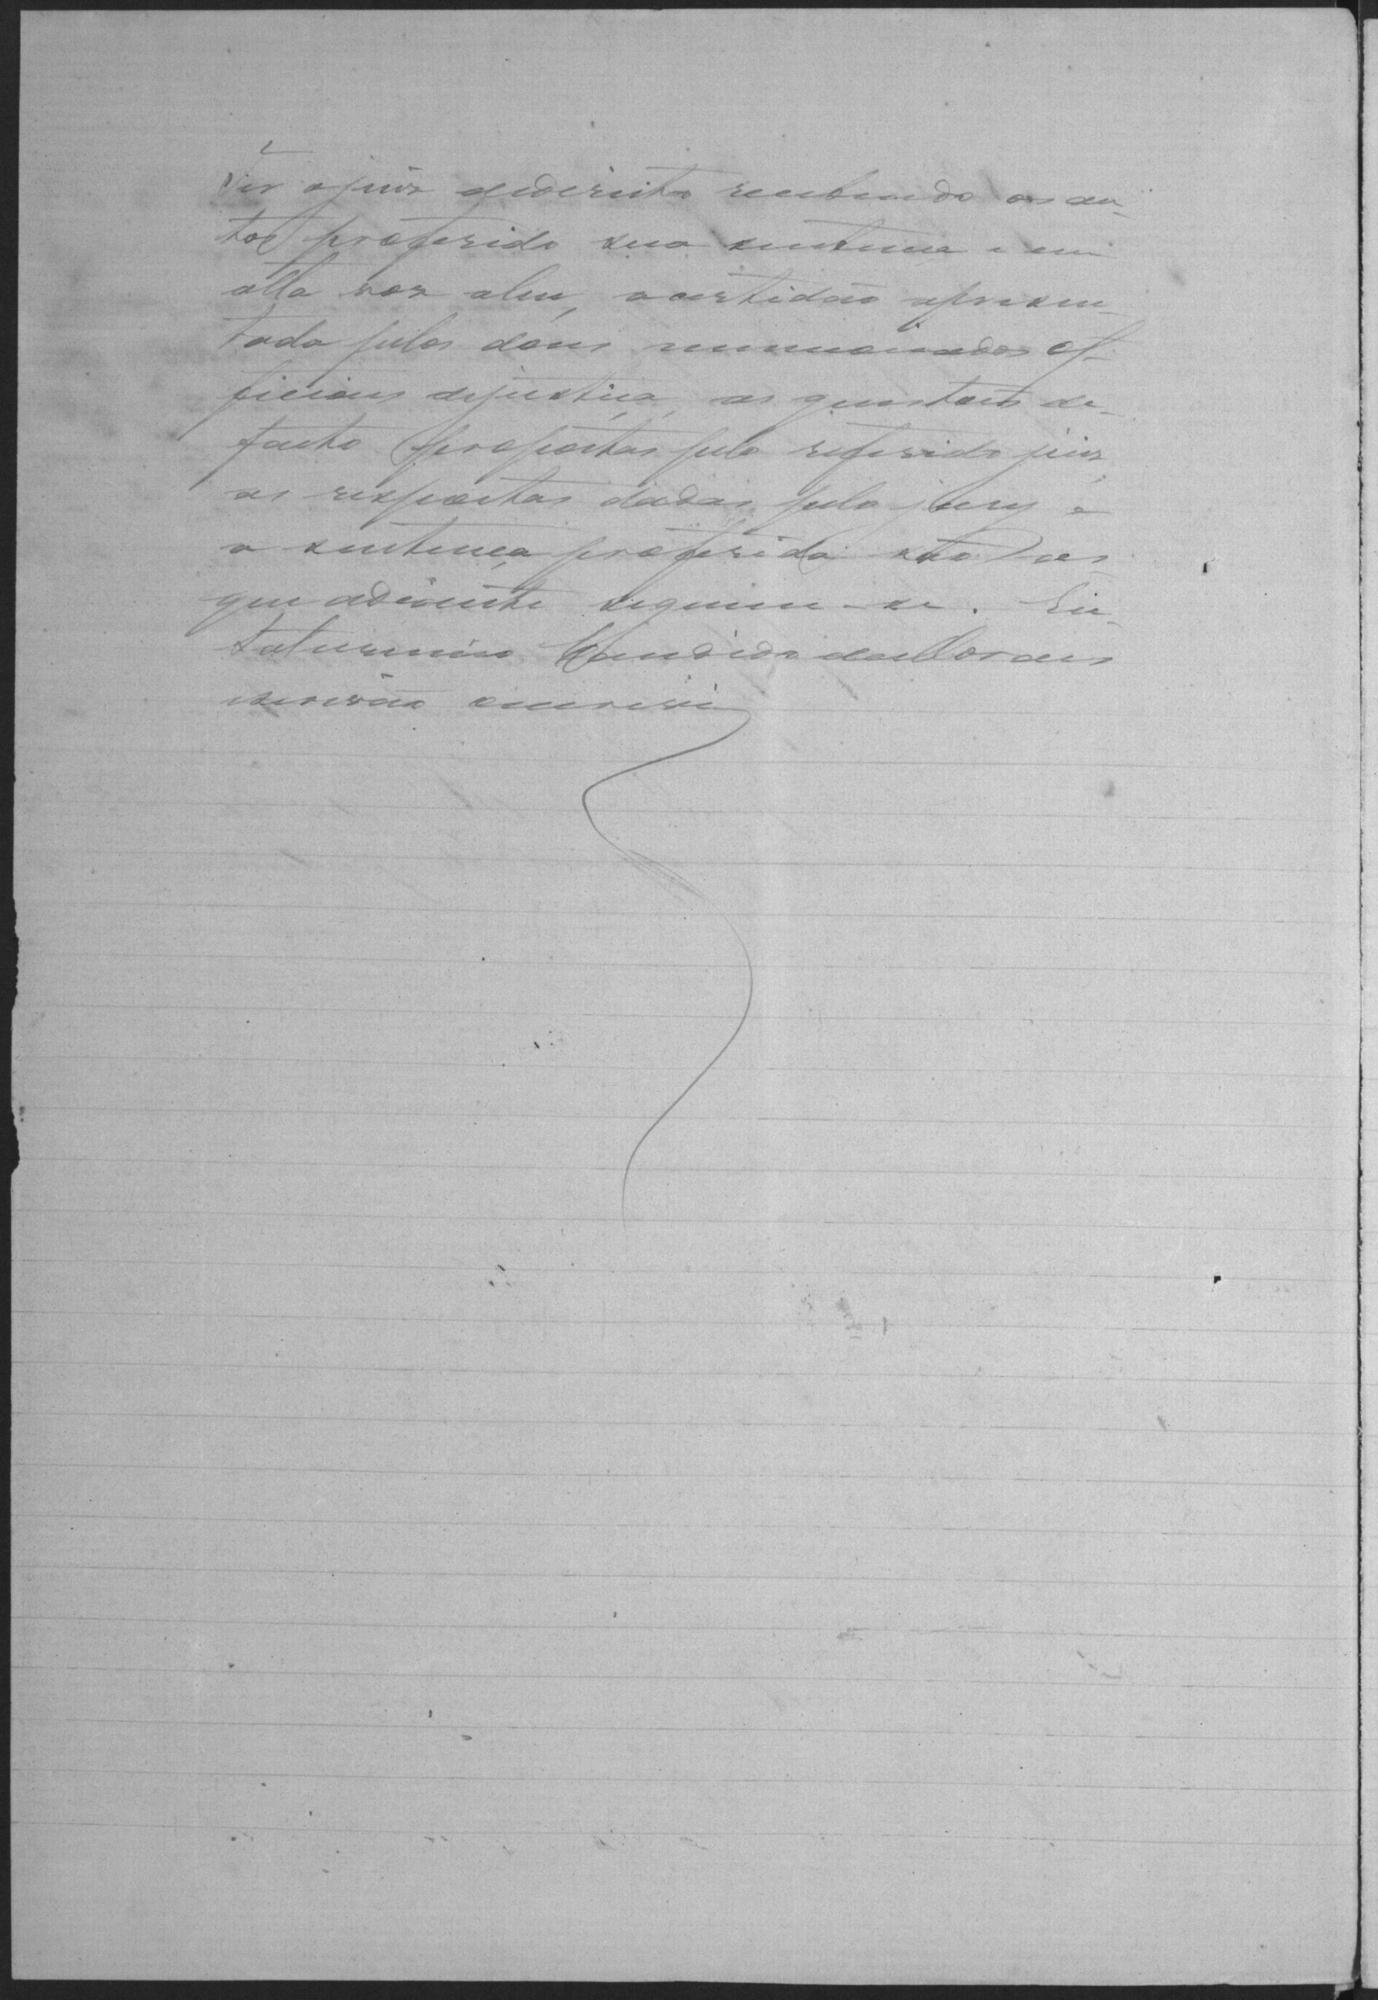 Vir o juiz dedireito recebendo os au-
tos proferido sua sentença e em
alta voz aleu, a certidão aprezen-
tada pelos dous officiaes of-
ficiaes dejustiça, as questoes de
facto propostas pelo referido juiz
as respostas dadas pelo jury e
a sentença proferida são as
que adiante seguem-se. Eu
Saturnino Candido das Moraes
escrivão escrevi